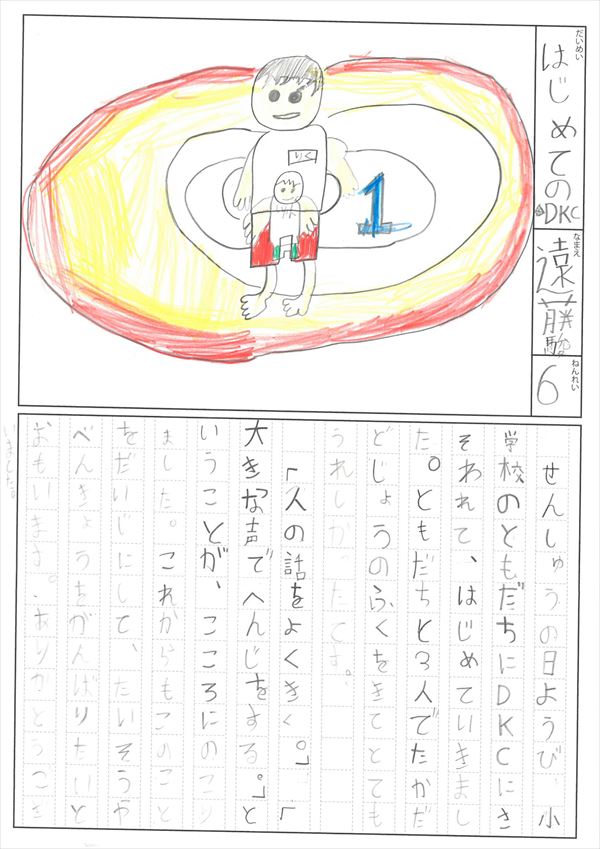 だいめい
はじめてのDKC
なまえ
遠藤
ねんれい
6
りく
1
せんしゅうの日ようび、小
学校のともだちにDKCにさ
そわれて、はじめていきまし
た。ともだちと3人でたかだ
どじょうのふくをきてとても
うれしかったです。
「人の話をよくきく。」「
大きな声でへんじをする。」と
いうことが、こころにのこり
ました。これからもこのこと
をだいじにして、たいそうや
べんきょうをがんばりたいと
おもいます。ありがとうござ
いました。